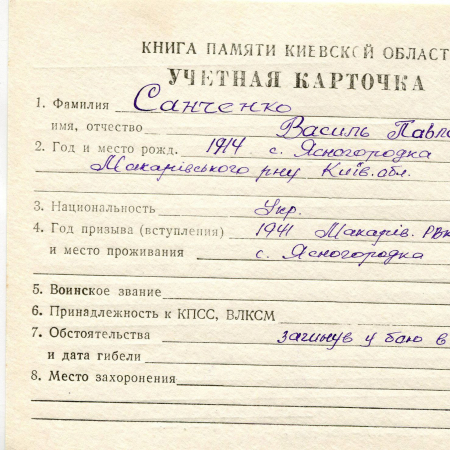 КНИГА ПАМЯТИ КИЕВСКОЙ ОБЛАСТ
УЧЕТНАЯ КАРТОЧКА
1. Фамилия Санченко
имя, отчество Василь Павло
2. Год и место рожд. 1914 с. Ясногородка
Макарівського р-ну Київ. обл.
3. Национальность Укр.
4. Год призыва (вступления) 1941 Макарів. РВК
и место проживания с. Ясногородка
5. Воинское звание
6. Принадлежность к КПСС, ВЛКСМ
7. Обстоятельства загинув у бою в
и дата гибели
8. Место захоронения